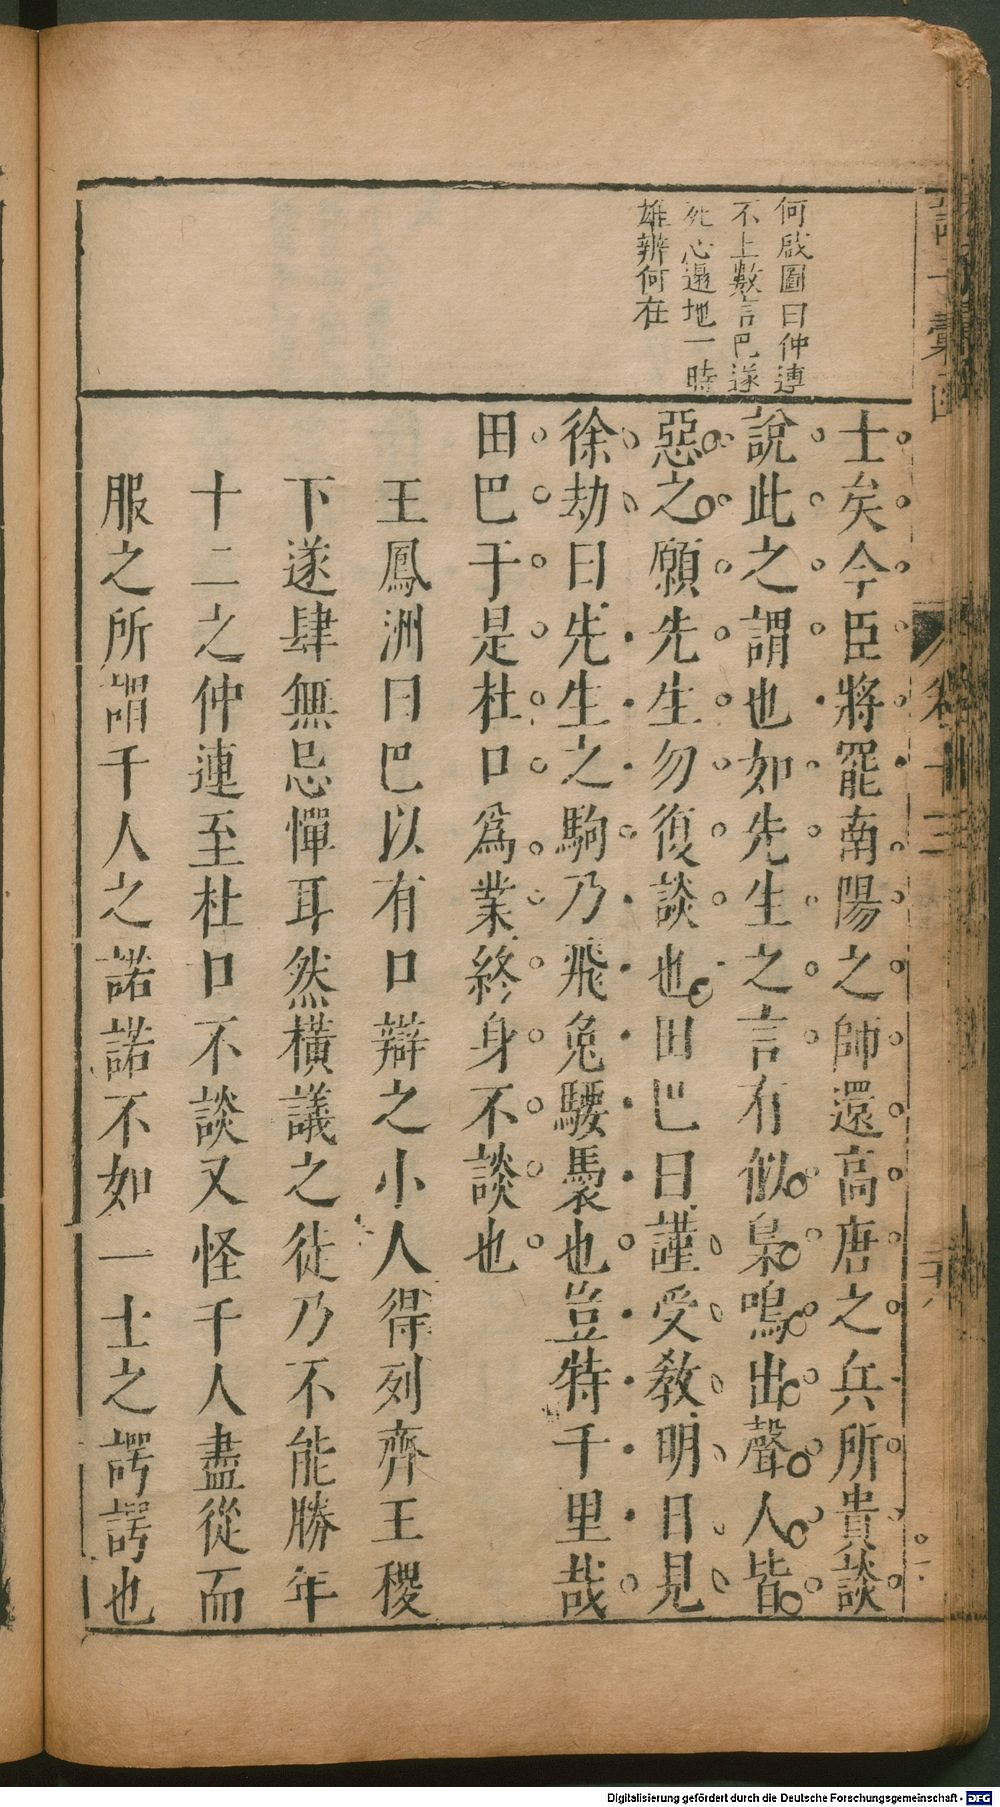 何啟圖曰仲連
不上數言巴遂
死心逷地一時
雄辨何在
士矣今臣將罷南陽之師還高唐之兵所貴談
說此之謂也如先生之言有似梟鳴出聲人皆
惡之願先生勿復談也田巴曰謹受敎明日見
徐劫曰先生之駒乃飛兔騕褭也豈特千里哉
田巴于是杜口爲業終身不談也
王鳳洲曰巴以有口辯之小人得列齊王稷
下遂肆無忌憚耳然橫議之徒乃不能勝年
十二之仲連至杜口不談又怪千人盡從而
服之所謂千人之諾諾不如一士之諤諤也
Digitalisierung gefördert durch die Deutsche Forschungsgemeinschaft - DFG